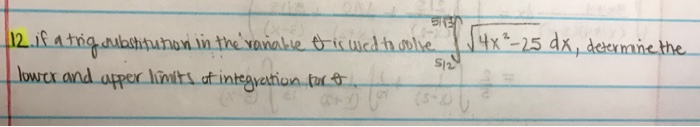 12. if a trig substitution in the variable θ is used to solve ∫ 5/2 5√3/3 √4x²-25 dx, determine the
lower and upper limits of integration for θ.